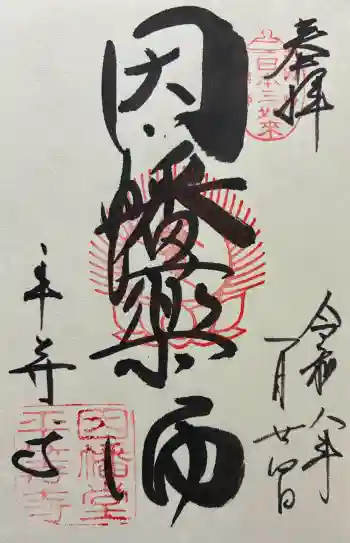 奉拝
日本三如来
令和八年
一月廿四日
因幡薬師
平等寺
因幡堂
平等寺